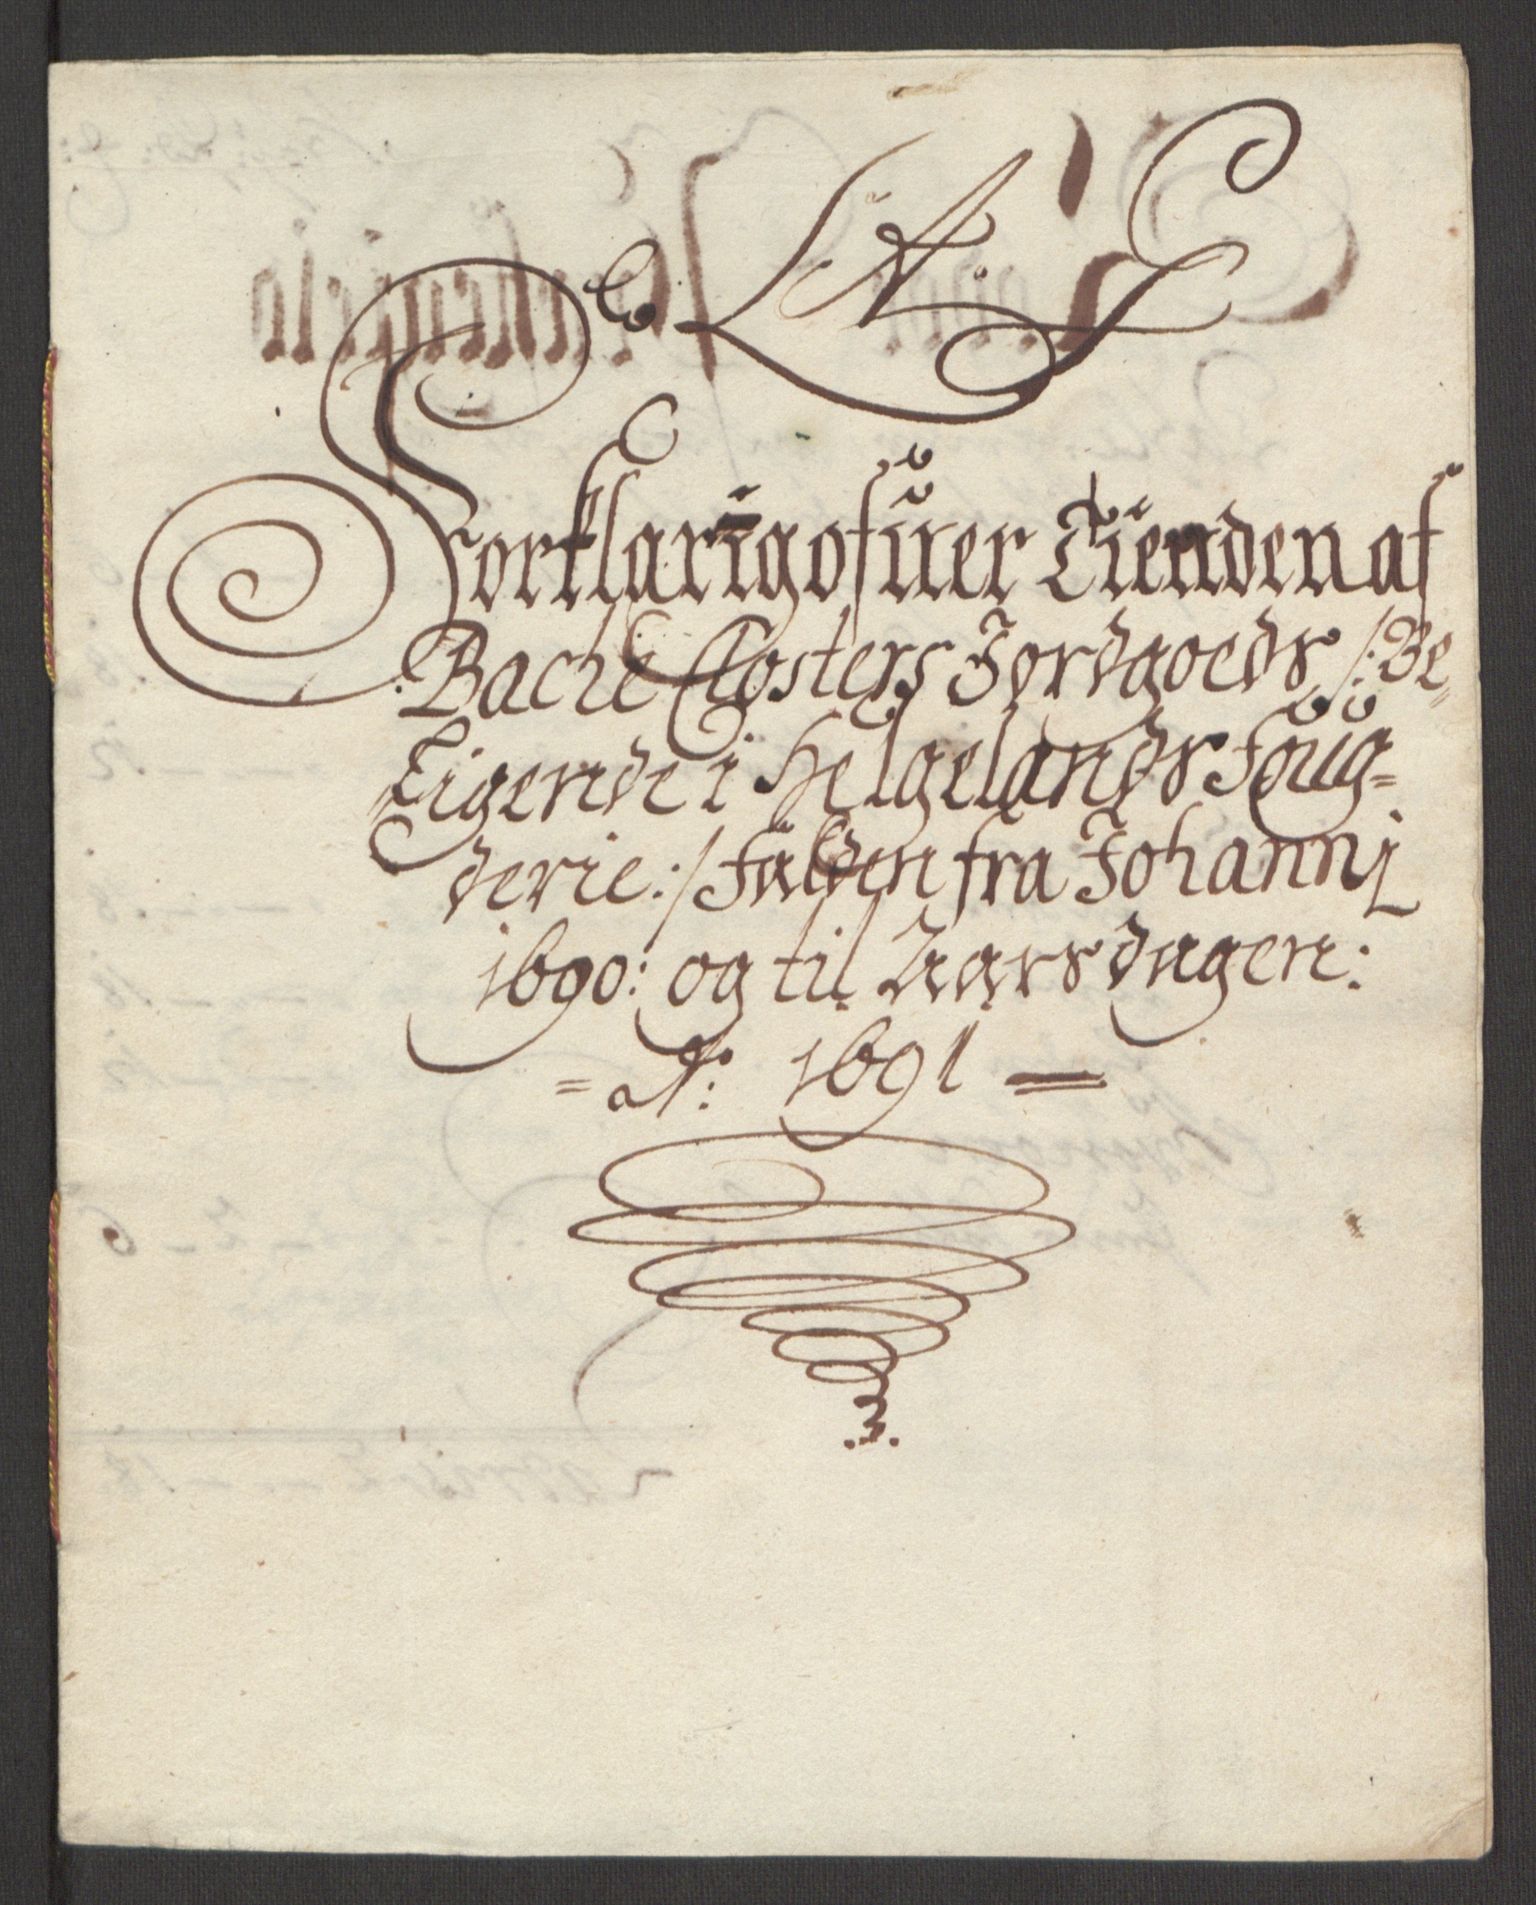 L: A: E
Forklarig ofuer Tienden af
Bache Closters Jordgoeds /: Be-
Ligende i Helgelands Foug-
derie :/ falden fra Johannj
1690: og til Aarsdagen:
= A:o 1691 =